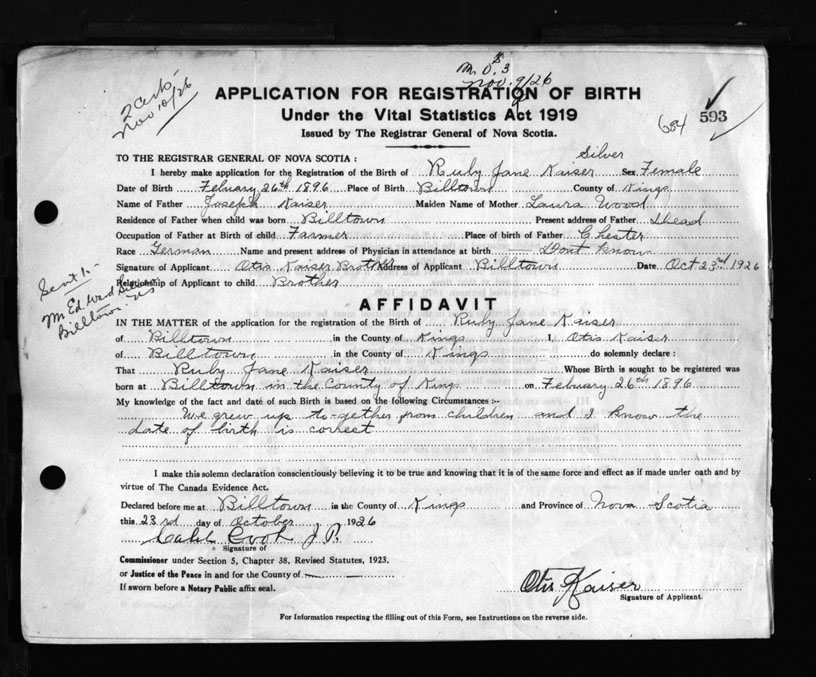 M.O. $3
Nov. 9/26
Nov 10/26
APPLICATION FOR REGISTRATION OF BIRTH
Under the Vital Statistics Act 1919
Issued by The Registrar General of Nova Scotia.
684 593
TO THE REGISTRAR GENERAL OF NOVA SCOTIA :
Silver
I hereby make application for the Registration of the Birth of Ruby Jane Kaiser Sex Female
Date of Birth Febuary 26th 1896 Place of Birth Billtown County of Kings
Name of Father Joseph Kaiser Maiden Name of Mother Laura Wood
Residence of Father when child was born Billtown Present address of Father Dead
Occupation of Father at Birth of child Farmer Place of birth of Father Chester
Race German Name and present address of Physician in attendance at birth Dont know
Signature of Applicant Otis Kaiser Brother Address of Applicant Billtown Date Oct 23rd 1926
Relationship of Applicant to child Brother
Sent to
Mr Edward
Billtown NS
AFFIDAVIT
IN THE MATTER of the application for the registration of the Birth of Ruby Jane Kaiser
of Billtown in the County of Kings I, Otis Kaiser
of Billtown in the County of Kings do solemnly declare :
That Ruby Jane Kaiser Whose Birth is sought to be registered was
born at Billtown in the County of Kings on Febuary 26th 1896
My knowledge of the fact and date of such Birth is based on the following Circumstances :-
We grew up to-gether from children and I know the
date of birth is correct
I make this solemn declaration conscientiously believing it to be true and knowing that it is of the same force and effect as if made under oath and by
virtue of The Canada Evidence Act.
Declared before me at Billtown in the County of Kings and Province of Nova Scotia
this 23rd day of October 1926
Cook J.P.
Signature of
Commissioner under Section 5, Chapter 38, Revised Statutes, 1923,
or Justice of the Peace in and for the County of
If sworn before a Notary Public affix seal.
Otis Kaiser
Signature of Applicant.
For Information respecting the filling out of this Form, see Instructions on the reverse side.